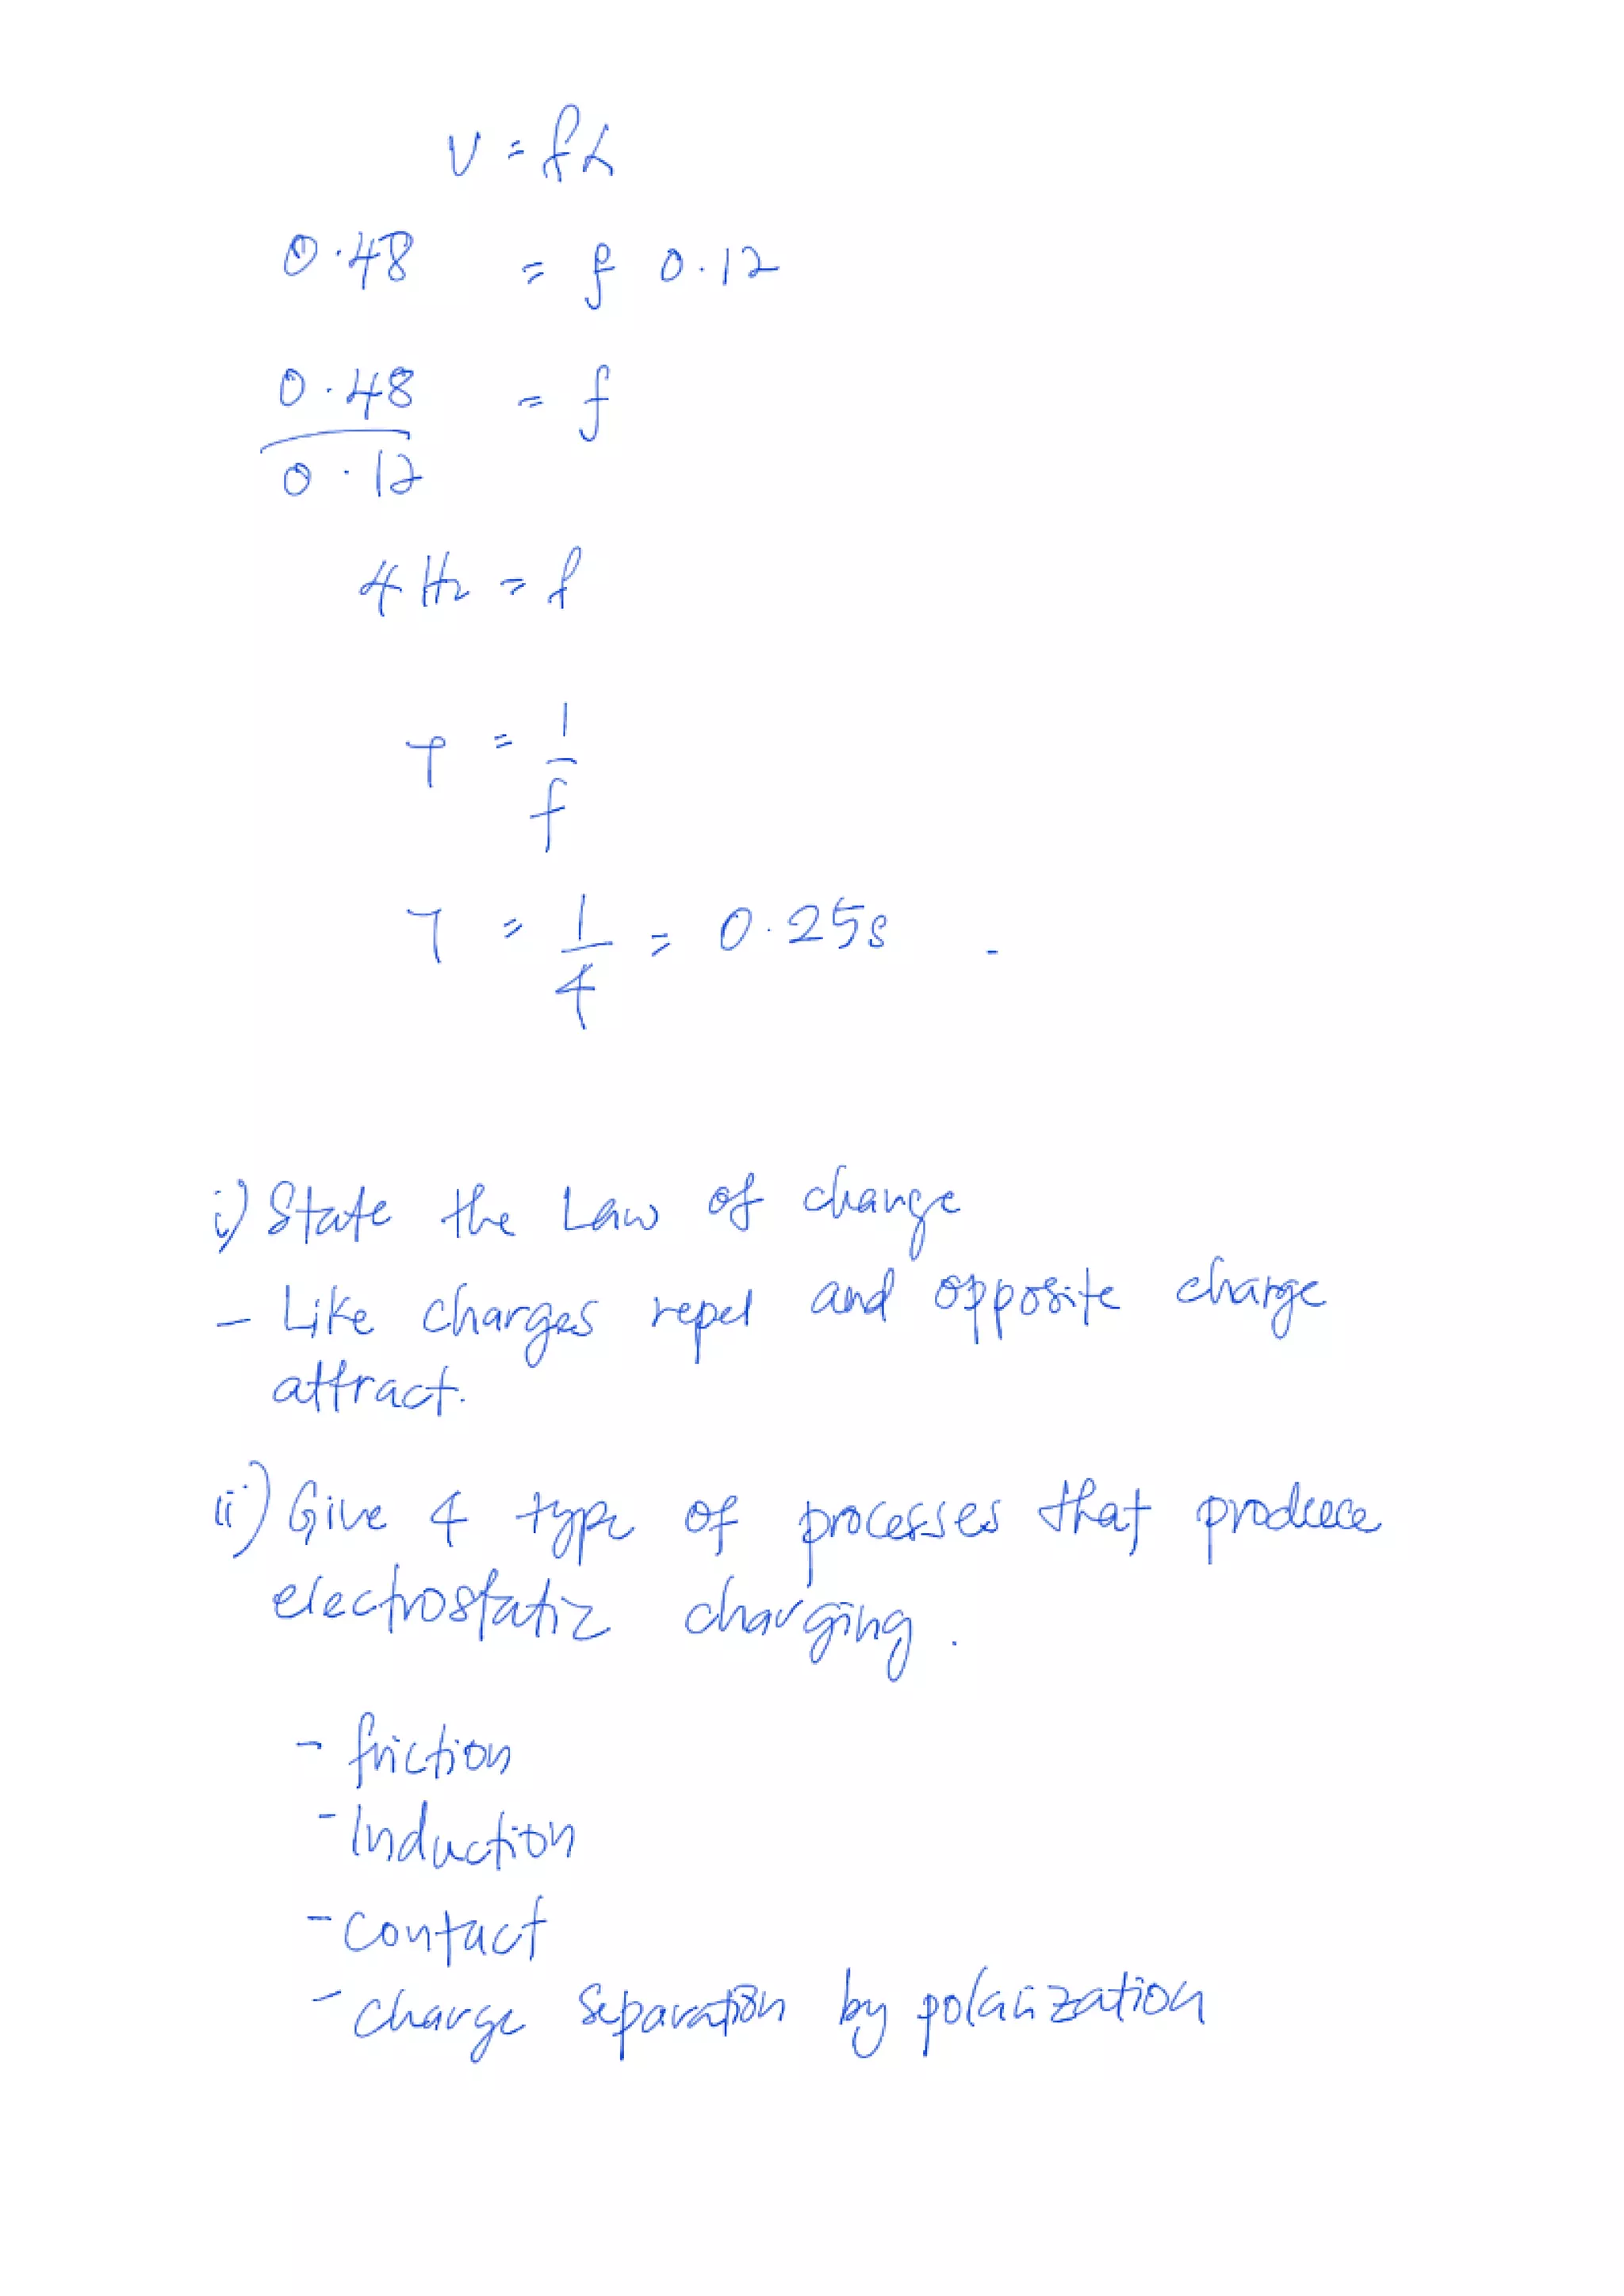 v = fλ
0.48 = f 0.12
0.48 = f
0.12
4 Hz = f
T = 1
f
T = 1 = 0.25s
4
i) State the Law of charge
- Like charges repel and opposite charge
attract.
ii) Give 4 type of processes that produce
electrostatic charging.
- friction
- Induction
- contact
- charge separation by polarization